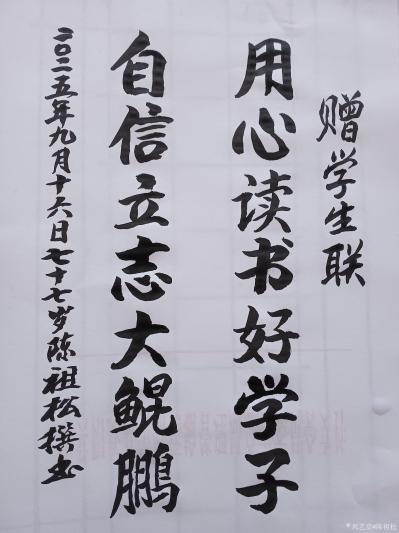 赠学生联
用心读书好学子
自信立志大鲲鹏
二〇二五年九月十六日七十七岁陈祖松撰书